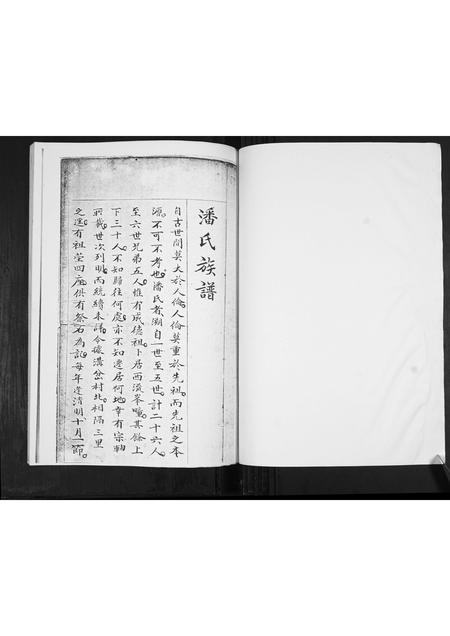 潘氏族譜
自古世間莫大於人倫。人倫莫重於先祖。而先祖之本
源。不可不考也。潘氏者溯自一世至五世。計二十六人。
至六世兄弟五人。惟有成德祖卜居西流峯嘴。其餘上
下三十人。不知歸往何處。亦不知遷居何地。幸有宗軸
所載。世次列明。而統續未議。今據溝岔村北。相隔三里
之遙。有祖塋四座。俱有祭石為記。每年逢清明十月一節。